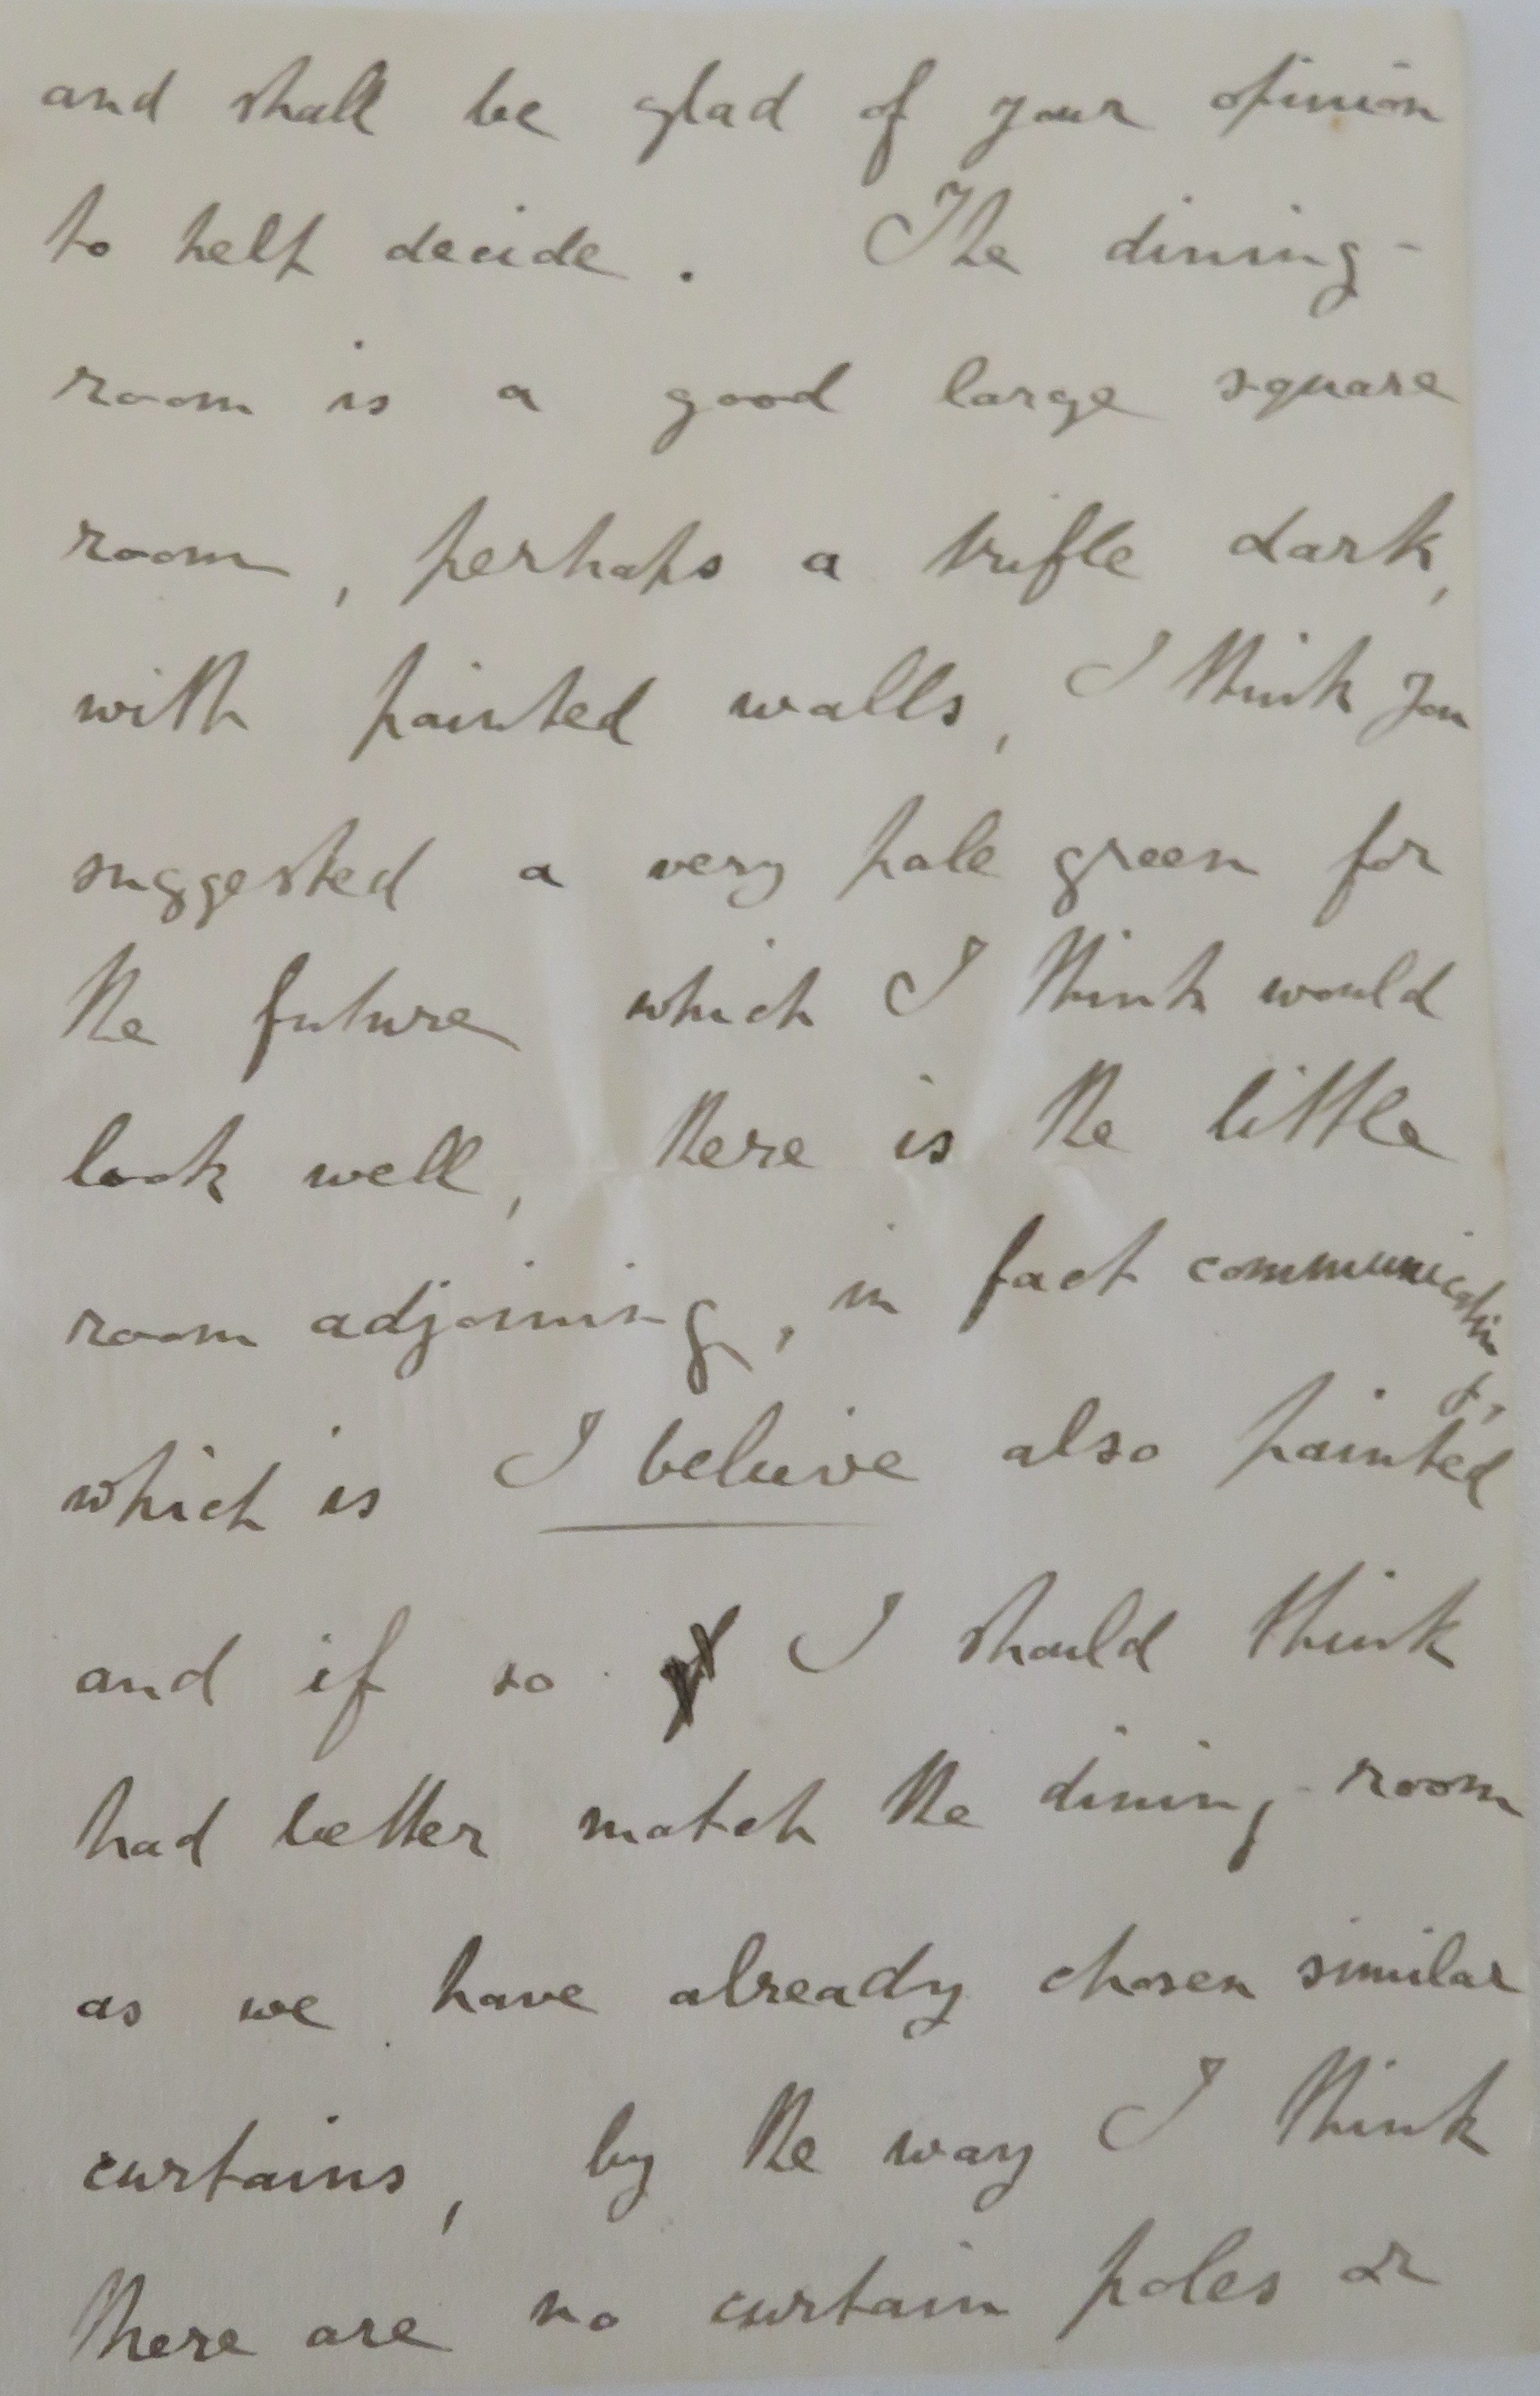 and shall be glad of your opinion
to help decide. The dining-
room is a good large square
room, perhaps a trifle dark,
with painted walls, I think you
suggested a very pale green for
the future which I think would
look well, there is the little
room adjoining, in fact communicating,
which is I believe also painted
and if so I should think
had better match the dining-room
as we have already chosen similar
curtains, by the way I think
there are no curtain poles or